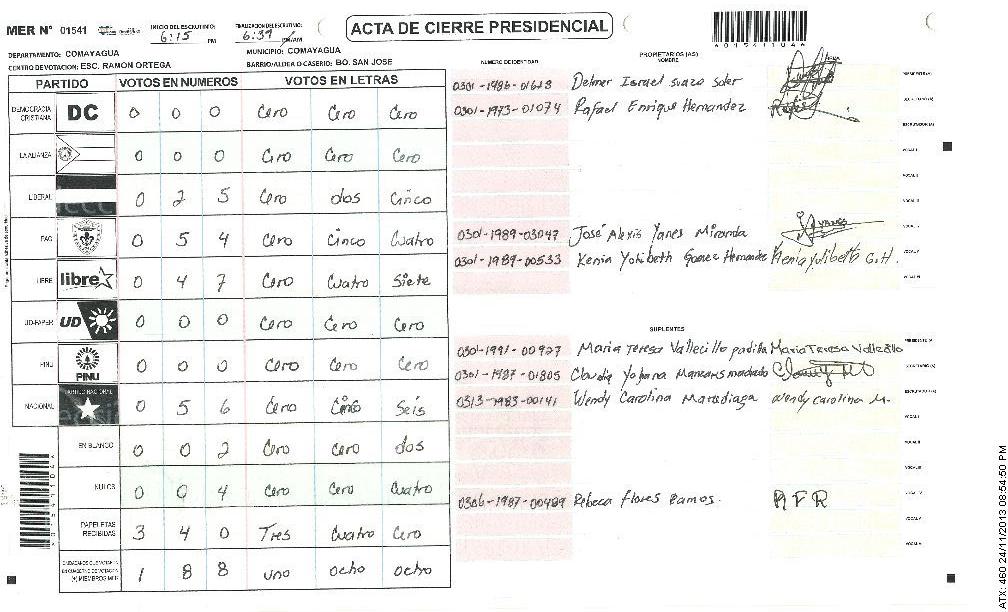 MER N° 01541
INICIO DEL ESCRUTINIO: 6:15 PM
FINALIZACION DEL ESCRUTINIO: 6:39 PM/AM
ACTA DE CIERRE PRESIDENCIAL
DEPARTAMENTO: COMAYAGUA
MUNICIPIO: COMAYAGUA
CENTRO DE VOTACION: ESC. RAMON ORTEGA
BARRIO/ALDEA O CASERIO: BO. SAN JOSE
PARTIDO VOTOS EN NUMEROS VOTOS EN LETRAS
DEMOCRACIA CRISTIANA DC 0 0 0 Cero Cero Cero
LA ALIANZA 0 0 0 Cero Cero Cero
LIBERAL 0 2 5 Cero dos Cinco
PAC 0 5 4 Cero Cinco Cuatro
LIBRE libre 0 4 7 Cero Cuatro Siete
UD-FAPER UD 0 0 0 Cero Cero Cero
PINU PINU 0 0 0 Cero Cero Cero
NACIONAL 0 5 6 Cero Cinco Seis
EN BLANCO 0 0 2 Cero Cero dos
NULOS 0 0 4 Cero Cero Cuatro
PAPELETAS RECIBIDAS 3 4 0 Tres Cuatro Cero
CIUDADANOS QUE VOTARON EN CUADERNO DE VOTACION (+) MIEMBROS MER 1 8 8 uno ocho ocho
NUMERO DE IDENTIDAD
PROPIETARIOS (AS)
NOMBRE
0301-1986-01618 Delmer Israel suazo soler
PRESIDENTE (A)
0301-1973-01074 Rafael Enrique Hernandez
SECRETARIO (A)
ESCRUTADOR (A)
VOCAL I
VOCAL II
VOCAL III
0301-1989-03047 José Alexis Yanes Miranda
0301-1989-00533 Kenia Yolibeth Gomez Hernandez Kenia Yolibeth G.H.
VOCAL V
VOCAL VI
SUPLENTES
0301-1991-00927 Maria Teresa Vallecillo padilla Maria Teresa Vallecillo
PRESIDENTE (A)
0301-1987-01805 Claudia Yohana Manzanares machado
SECRETARIO (A)
0313-1983-00141 Wendy Carolina Maradiaga Wendy Carolina M.
ESCRUTADOR (A)
VOCAL I
VOCAL II
VOCAL III
0306-1987-00489 Rebeca flores Ramos. R F R
VOCAL IV
VOCAL V
VOCAL VI
ATX: 460 24/11/2013 08:54:50 PM